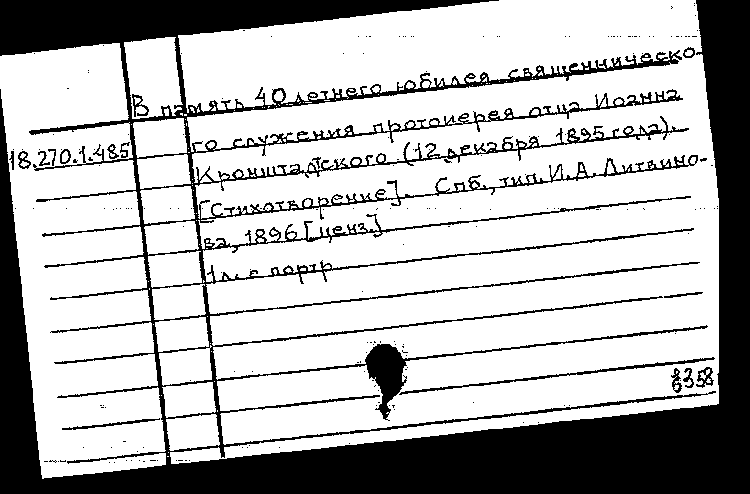 В память 40 летнего юбилея священническо-
го служения протоиерея отца Иоанна
18.270.1.485
Кронштадтского (12 декабря 1895 года).
[Стихотворение]. Спб., тип. И. А. Литвино-
ва, 1896 [ценз.]
1 л. с портр.